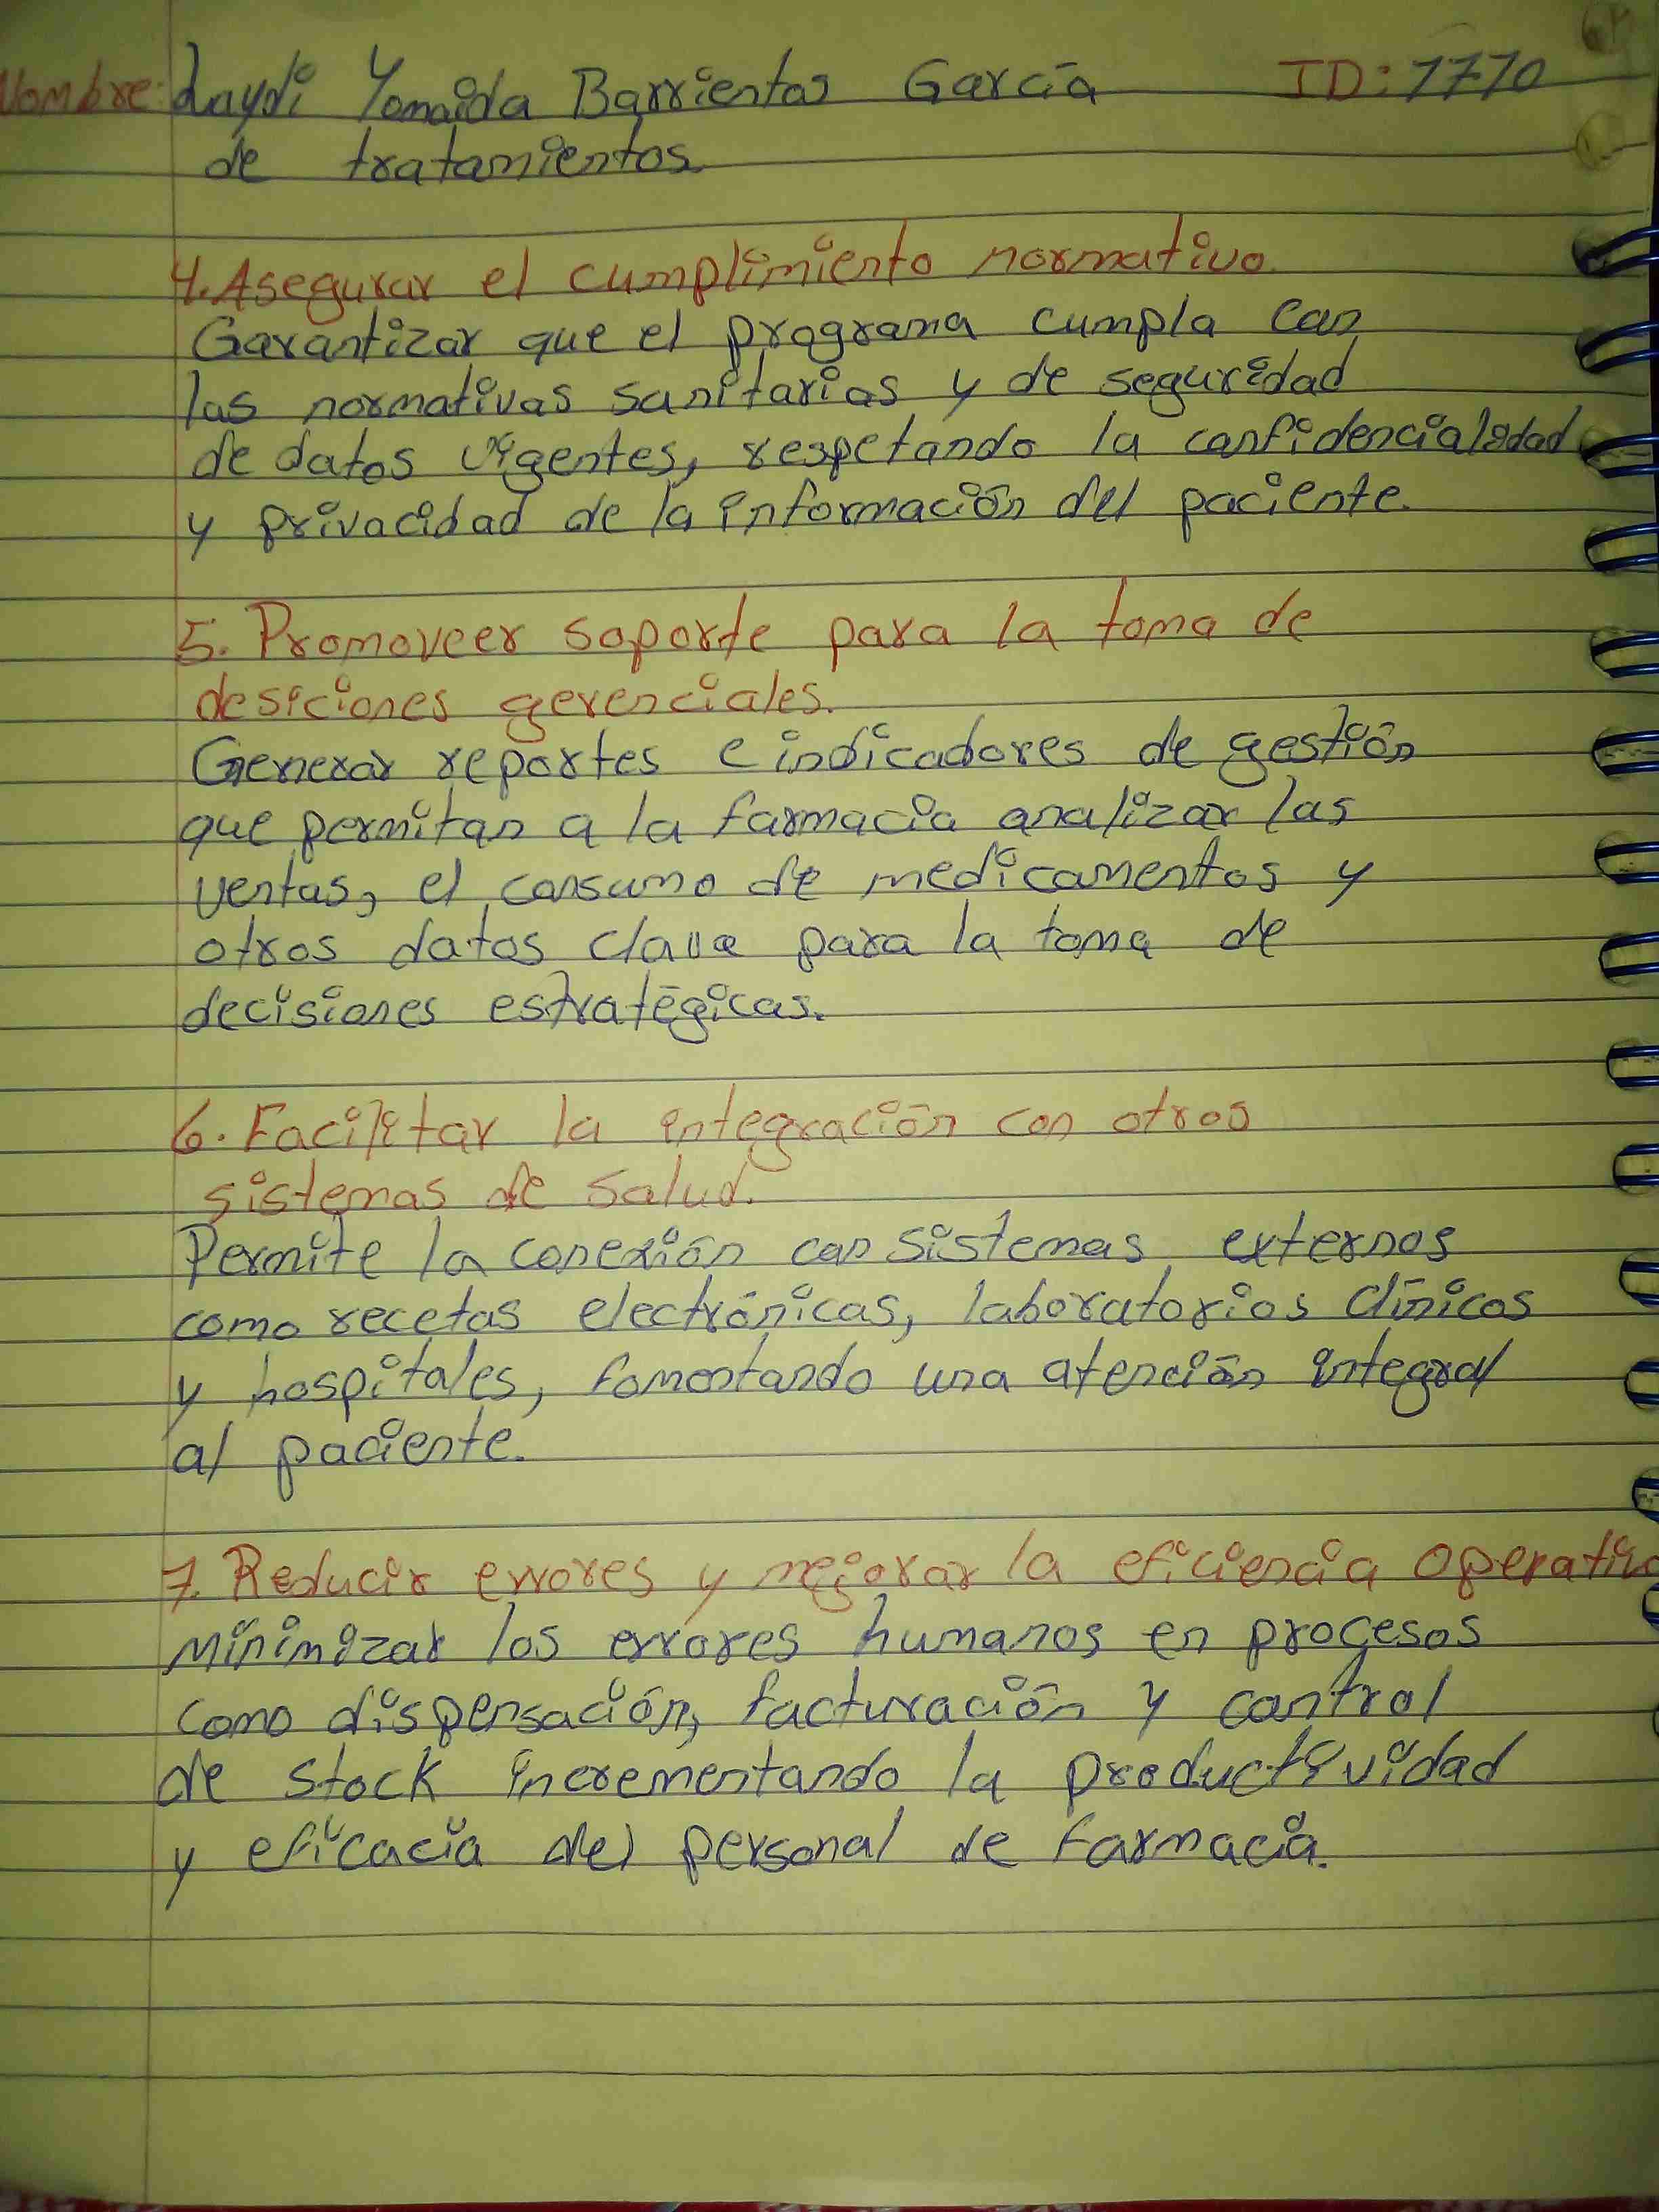 Nombre: Laydi Yomaida Barrientos García ID: 1770
de tratamientos.
4. Asegurar el cumplimiento normativo.
Garantizar que el programa cumpla con
las normativas sanitarias y de seguridad
de datos vigentes, respetando la confidencialidad
y privacidad de la información del paciente.
5. Promoveer soporte para la toma de
desiciones gerenciales.
Generar reportes e indicadores de gestión
que permitan a la farmacia analizar las
ventas, el consumo de medicamentos y
otros datos clave para la toma de
decisiones estratégicas.
6. Facilitar la integración con otros
sistemas de salud.
Permite la conexión con sistemas externos
como recetas electrónicas, laboratorios clínicos
y hospitales, fomentando una atención integral
al paciente.
7. Reducir errores y mejorar la eficiencia operativa
Minimizar los errores humanos en procesos
como dispensación, facturación y control
de stock incrementando la productividad
y eficacia del personal de farmacia.